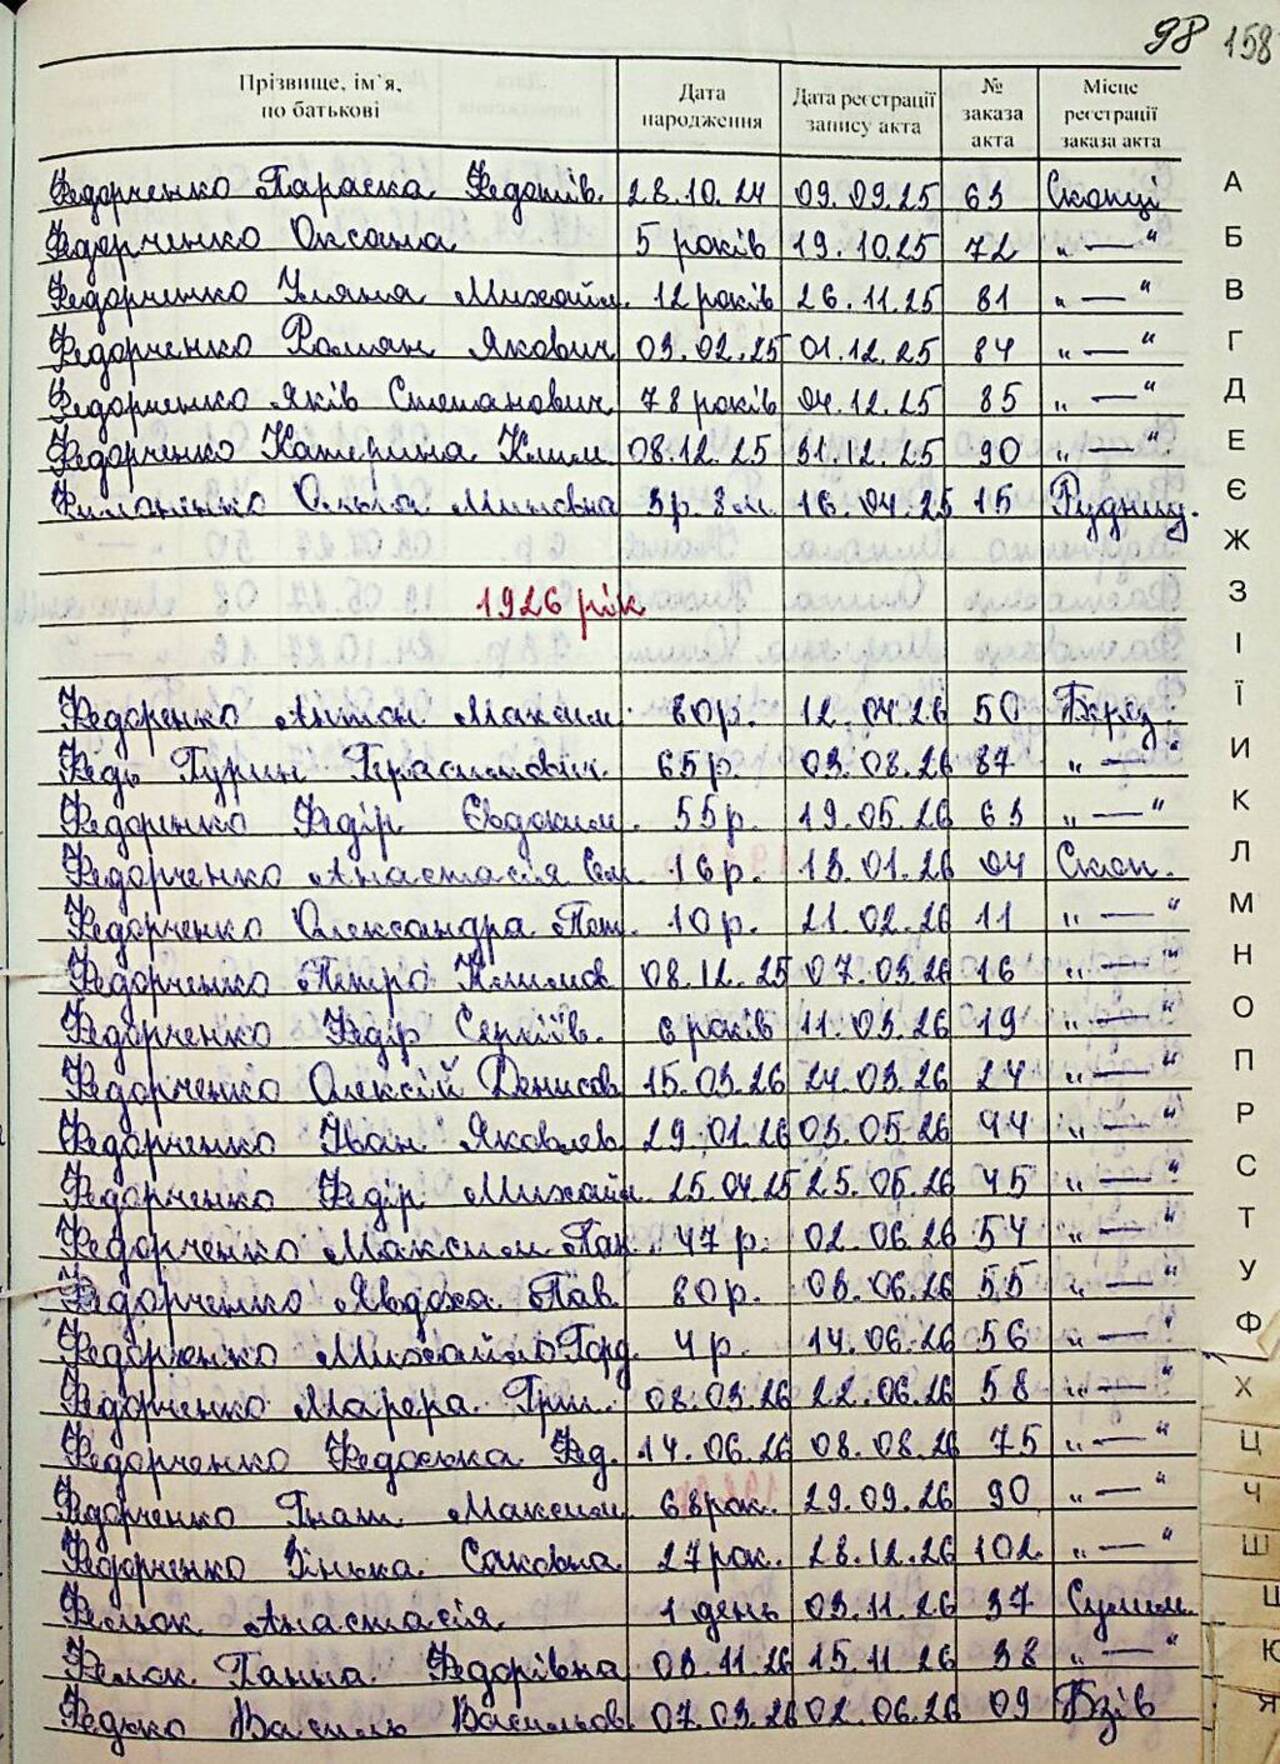 98 158
Прізвище, ім`я, по батькові Дата народження Дата реєстрації запису акта № заказа акта Місце реєстрації заказа акта
Федорченко Параска Федотів. 28.10.24 09.09.25 63 Скопці
Федорченко Оксана 5 років 19.10.25 72 „ — “
Федорченко Уляна Михайл. 12 років 26.11.25 81 „ — “
Федорченко Роман Якович 03.02.25 01.12.25 84 „ — “
Федорченко Яків Степанович 78 років 04.12.25 85 „ — “
Федорченко Катерина Клим. 08.12.25 31.12.25 90 „ — “
Ольга 3р. 8м. 16.04.25 15 Рудниц.
1926 рік
Федоренко Антон Максим. 80р. 12.04.26 50 Берез.
Федо Гурин 65р. 03.08.26 87 „ — “
Федоренко Федір Євдоким. 55р. 19.05.26 63 „ — “
Федорченко Анастасія Сем. 16р. 13.01.26 04 Скоп.
Федорченко Олександра Пет. 10р. 21.02.26 11 „ — “
Федорченко Петро Климов 08.12.25 07.03.26 16 „ — “
Федорченко Федір Сергіїв. 6 років 11.03.26 19 „ — “
Федорченко Олексій Денисов 15.03.26 24.03.26 24 „ — “
Федорченко Іван Яковлев. 29.01.26 03.05.26 44 „ — “
Федорченко Федір Михайл. 25.04.25 25.05.26 45 „ — “
Федорченко Максим Пан. 47р. 02.06.26 54 „ — “
Федорченко Явдоха Пав. 80р. 03.06.26 55 „ — “
Федорченко Михайло Горд. 4р. 14.06.26 56 „ — “
Федорченко Гри. 08.03.26 22.06.26 58 „ — “
Федорченко Федоська Фед. 14.06.26 08.08.26 75 „ — “
Федорченко Гнат Максим. 68 рок. 29.09.26 90 „ — “
Федорченко Зінька Саковна 27 рок. 28.12.26 102 „ — “
Анастасія 1 день 03.11.26 37 Сулим.
Ганна Федорівна 03.11.26 15.11.26 38 „ — “
Федько Василь Васильов. 07.03.26 02.06.26 09 Бзів
А
Б
В
Г
Д
Е
Є
Ж
З
І
Ї
И
К
Л
М
Н
О
П
Р
С
Т
У
Ф
Х
Ц
Ч
Ш
Щ
Ю
Я